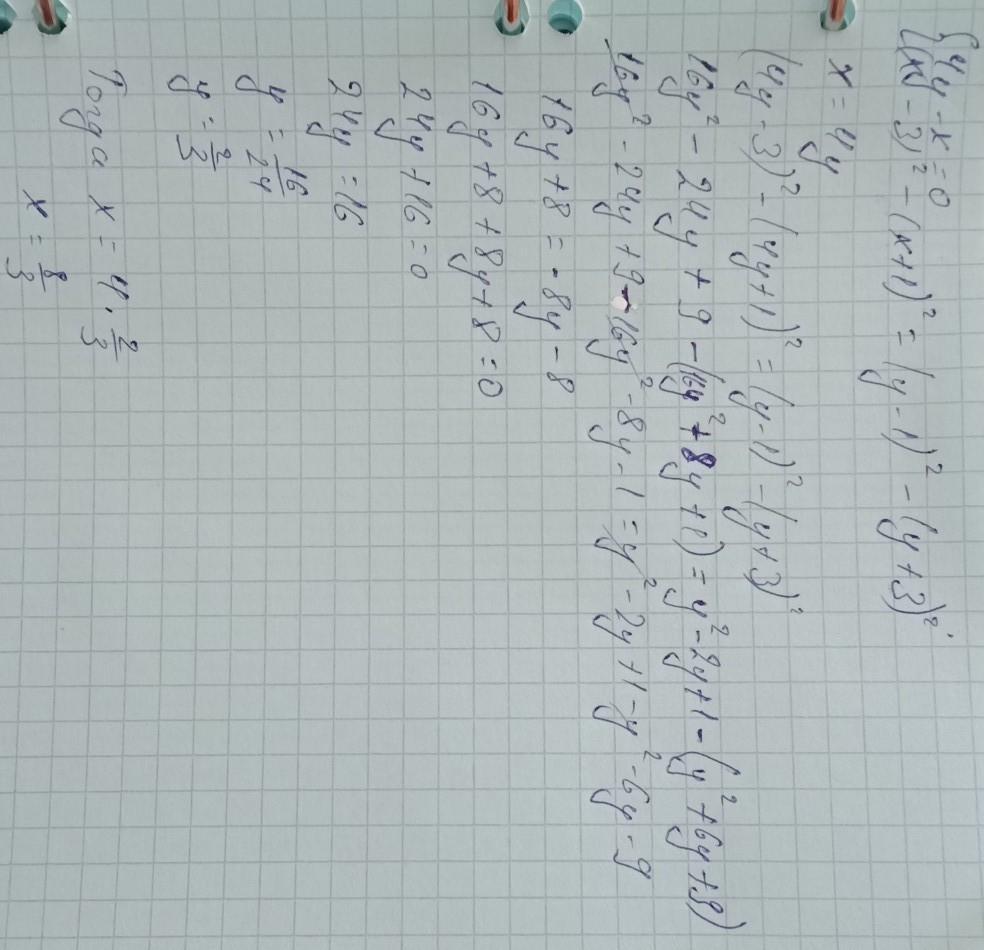 {4y - x = 0
{(x - 3)² - (x+1)² = (y - 1)² - (y+3)².
x = 4y
(4y - 3)² - (4y+1)² = (y-1)² - (y+3)²
16y² - 24y + 9 - (16y² + 8y + 1) = y² - 2y + 1 - (y² + 6y + 9)
16y² - 24y + 9 - 16y² - 8y - 1 = y² - 2y + 1 - y² - 6y - 9
16y + 8 = -8y - 8
16y + 8 + 8y + 8 = 0
24y + 16 = 0
24y = 16
y = 16/24
y = 2/3
Тогда x = 4 · 2/3
x = 8/3